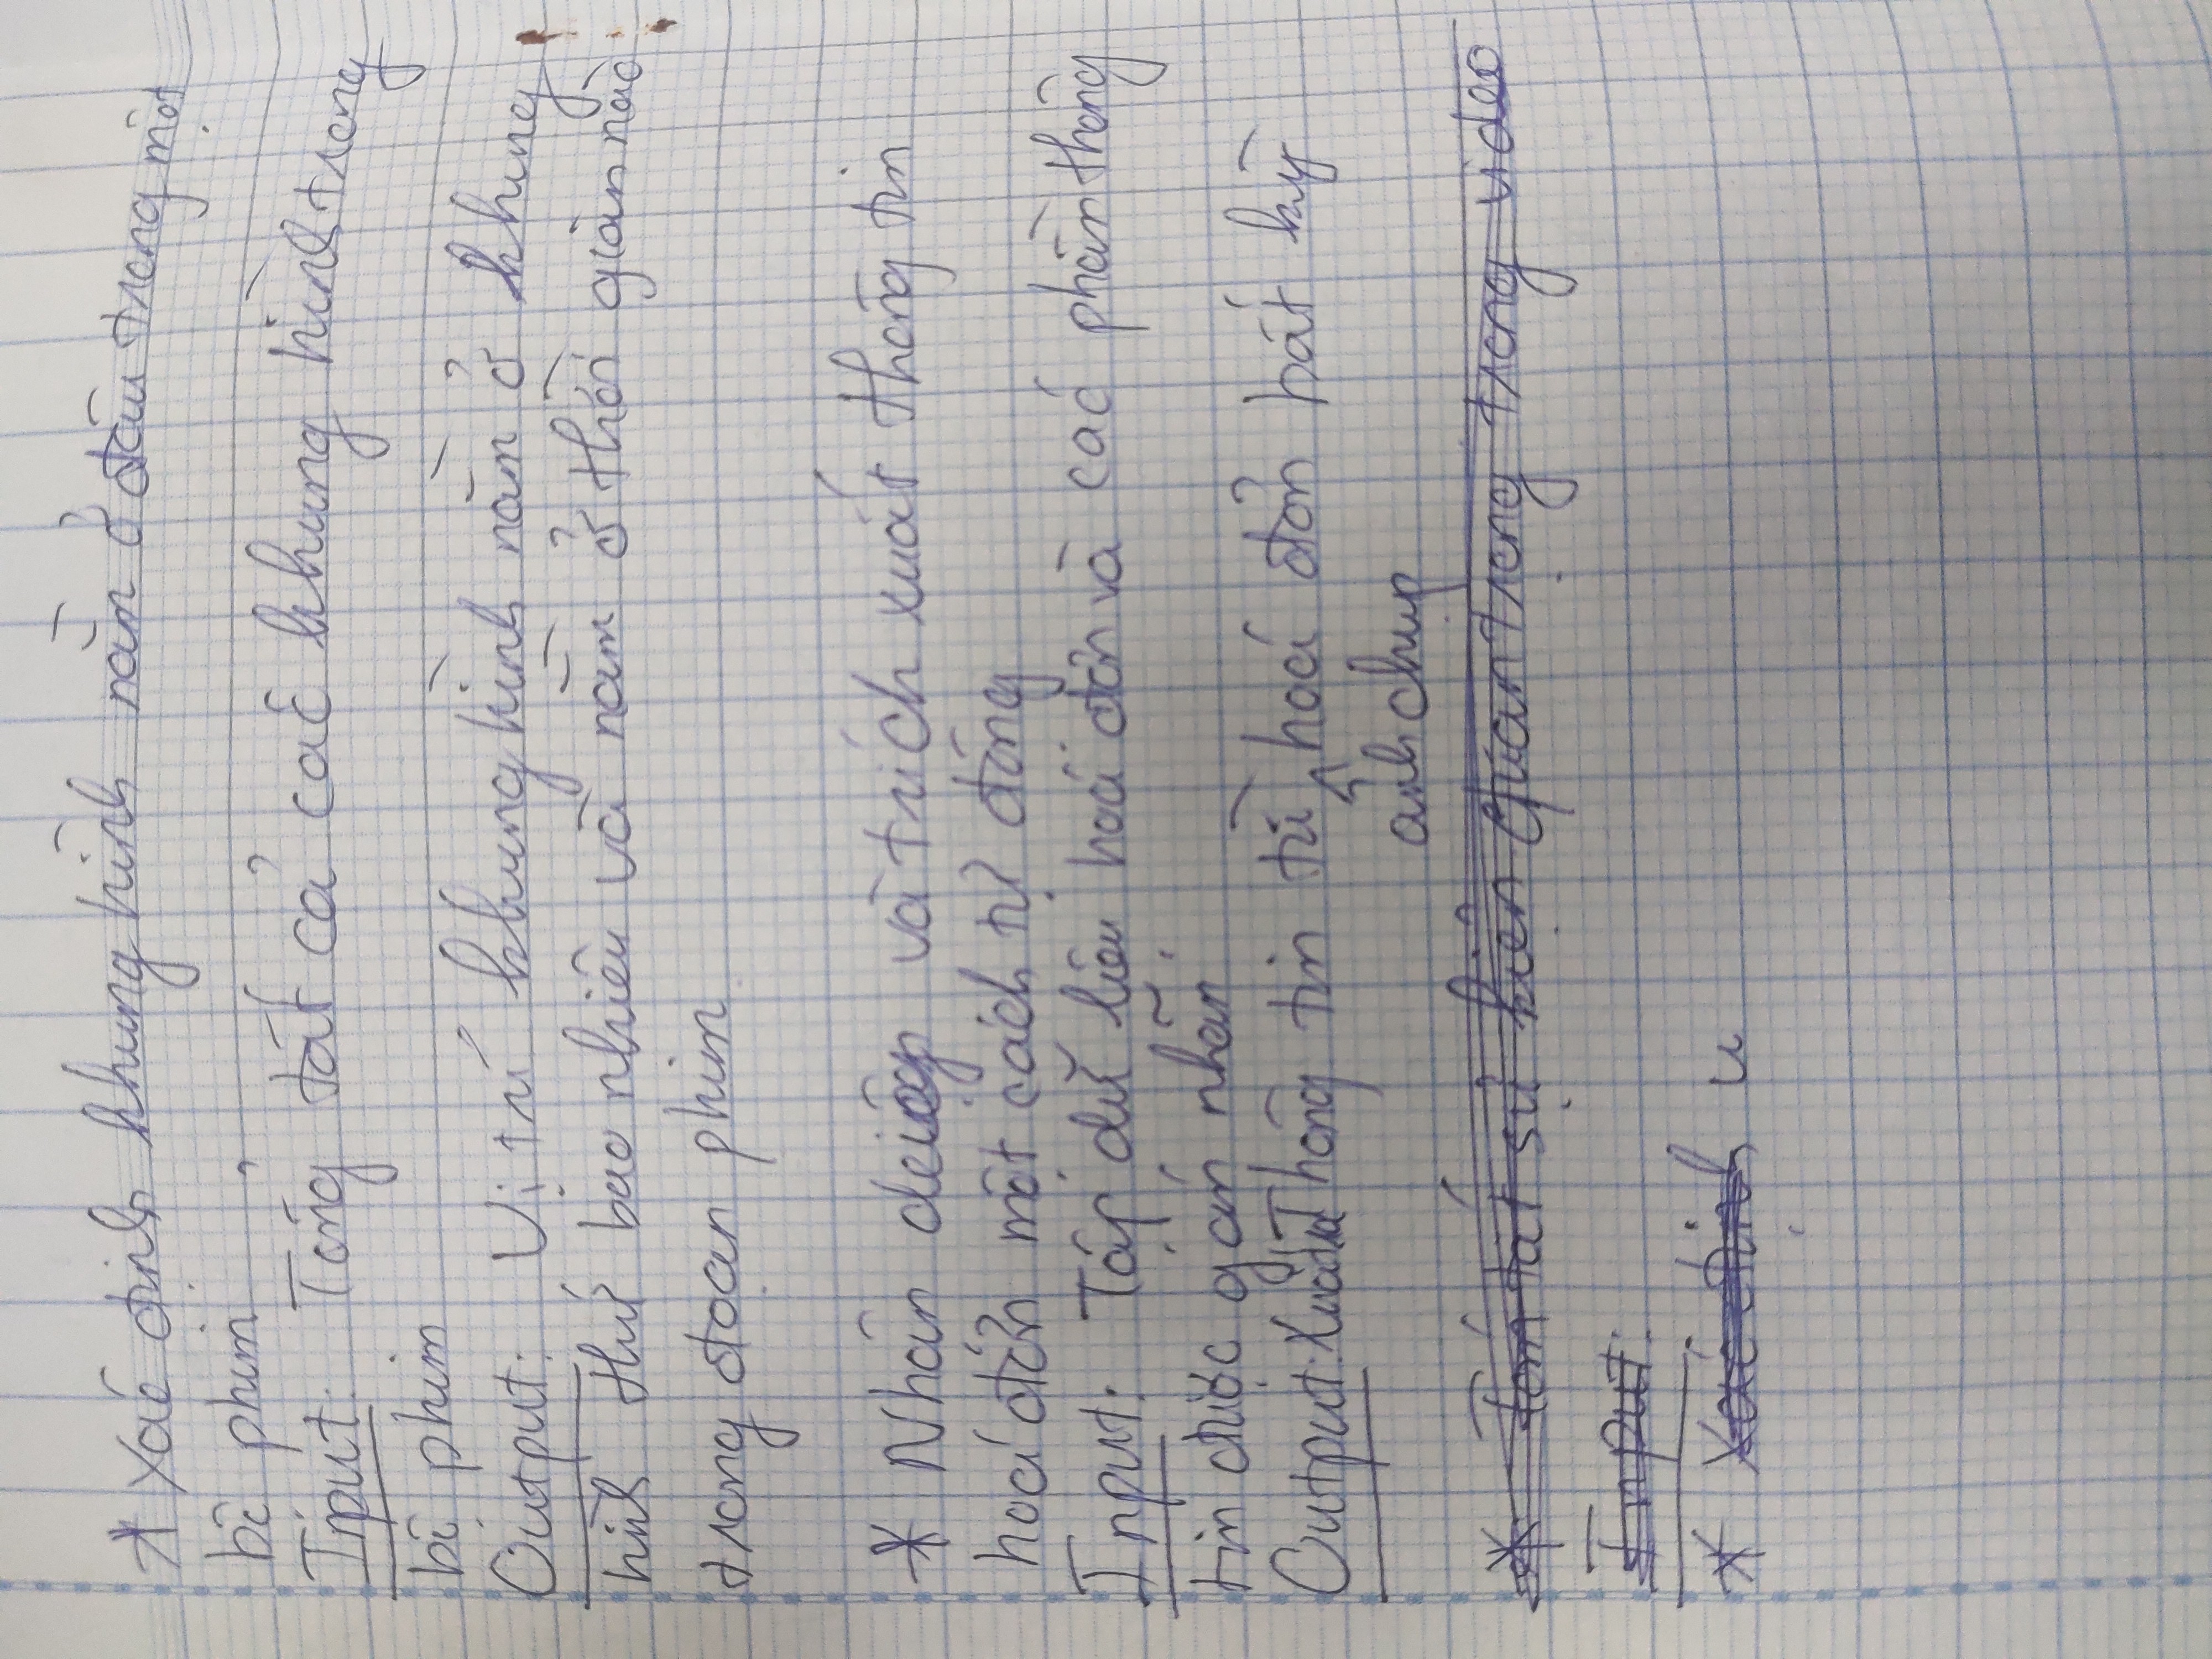 * Xác định khung hình nằm ở đâu trong một
bộ phim
Input: Tổng tất cả các khung hình trong
bộ phim
Output: Vị trí khung hình nằm ở khung
hình thứ bao nhiêu và nằm ở thời gian nào
trong đoạn phim
* Nhận diện và trích xuất thông tin
hoá đơn một cách tự động
Input: Tập dữ liệu hoá đơn và các phần thông
tin được gán nhãn
Output: Xuất ra Thông tin từ ảnh chụp hoá đơn bất kỳ
* Tóm tắt sự kiện quan trọng trong video
Input:
* Xác định u